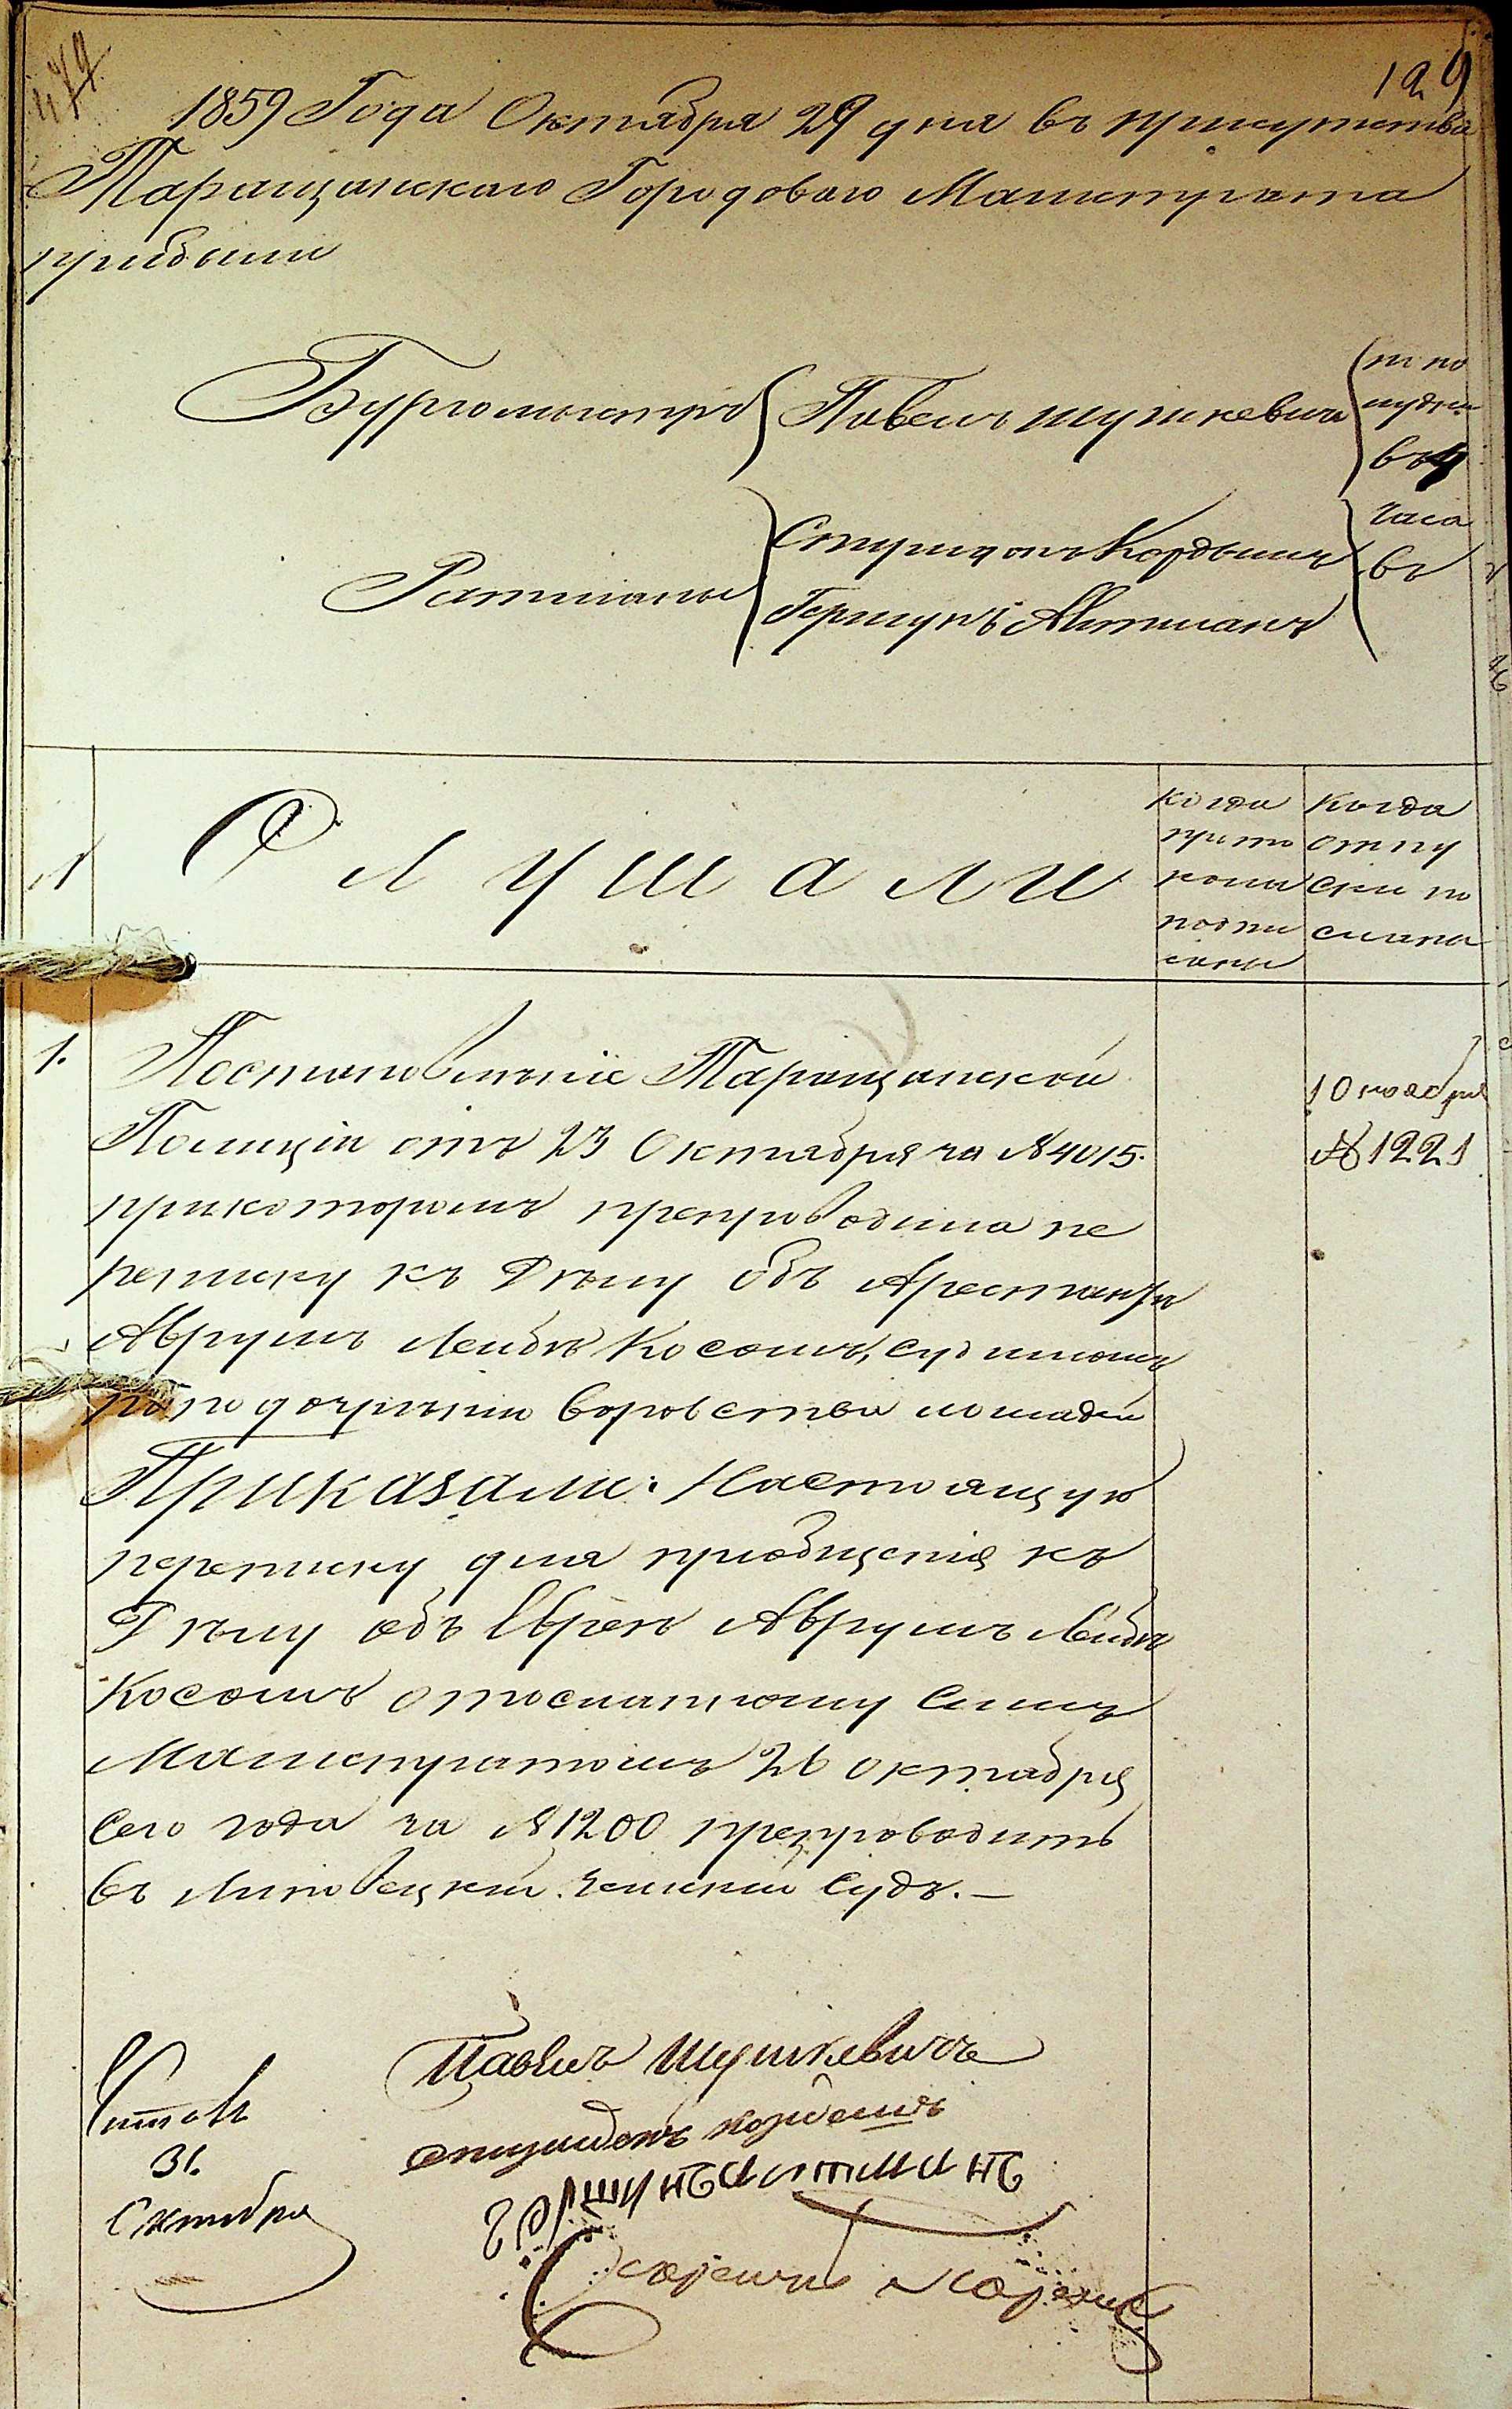 479
129
1859 Года Октября 29 дня въ присутствіе
Таращанскаго Городоваго Магистрата
прибыли
Бургомистръ Павелъ Шушкевичъ
Ратманы Спиридонъ Кордышъ
Гершунъ Альтманъ
по
въ
часо
въ
№
Слушали
когда
прото
колы
подпи
саны
когда
отпу
ски по
сланы
1.
Постановленіе Таращанской
Полиціи отъ 23 Октября за №4015.
прикоторомъ препроводила пе
реписку къ Дѣлу объ Арестантѣ
Аврумъ Лейбѣ Косомъ, судимомъ
по подозрѣнію воровства лошадей
Приказали: Настоящую
переписку для пріобщенія къ
Дѣлу объ Евреѣ Аврумъ Лейбѣ
Косомъ отосланному симъ
Магистратомъ 26 октября
сего года за №1200 препроводить
въ Липовецкій Земскій Судъ.—
10 ноября
№ 1221
Павелъ Шушкевичъ
спиридонъ кордышъ
Гершунъ Альтманъ
Читалъ
31.
Октября